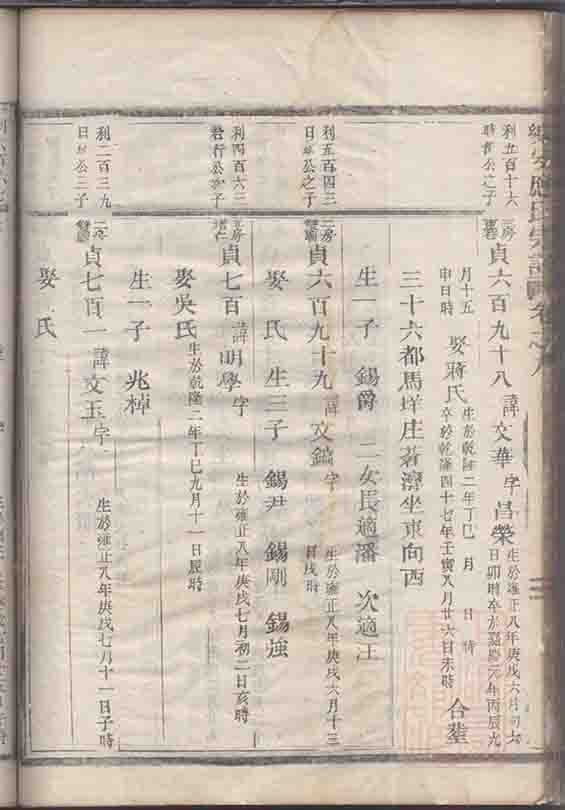 應氏宗譜
利五百十六
公之子
貞六百九十八 諱文華 字昌榮
生於雍正八年庚戌六月初六
日卯時卒於嘉慶元年丙辰九
月十五
申日時
娶蔣氏
生於乾隆二年丁巳 月 日 時
卒於乾隆四十七年壬寅八月廿六日未時
合塟
三十六都馬垟庄若濟坐東向西
生一子 錫爵 二女長適潘 次適汪
利五百四三
日 公之子
貞六百九十九 諱文 字
生於雍正八年庚戌六月十三
日戌時
娶 氏 生三子 錫尹 錫剛 錫強
利四百六三
公 子
貞七百 諱明學 字
生於雍正八年庚戌七月初二日亥時
娶吳氏
生於乾隆二年丁巳九月十一日辰時
生一子 兆棹
利二百三九
日 公三子
貞七百一 諱文玉 字
生於雍正八年庚戌七月十一日子時
娶 氏